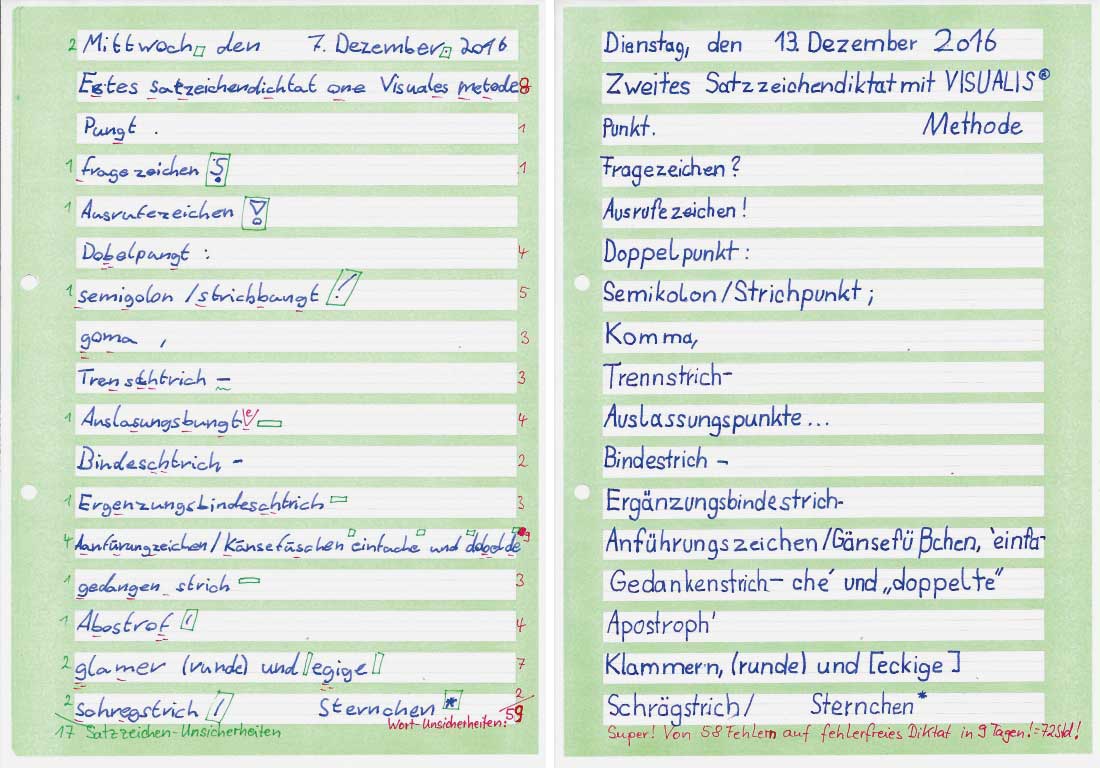 2 Mittwoch den 7. Dezember 2016
Estes satzeichendichtat one Visuales metode 8
Pungt . 1
1 fragezeichen ? 1
1 Ausrufezeichen !
Dobelpungt : 4
1 semigolon / strichbungt ! 5
goma , 3
Trenschtrich – 3
1 Auslasungsbungt e 4
Bindeschtrich - 2
1 Ergenzungsbindeschtrich 3
4 Aanfürungzeichen / Känsefüschen einfache und dobelde 9
1 gedangen strich 3
1 Abostrof 4
2 glamer (runde) und egige 7
2 schregstrich / Sternchen * 2
17 Satzzeichen-Unsicherheiten Wort-Unsicherheiten: 59
Dienstag, den 13. Dezember 2016
Zweites Satzzeichendiktat mit VISUALIS®
Punkt. Methode
Fragezeichen ?
Ausrufezeichen !
Doppelpunkt :
Semikolon/Strichpunkt ;
Komma,
Trennstrich-
Auslassungspunkte ...
Bindestrich -
Ergänzungsbindestrich-
Anführungszeichen/Gänsefüßchen, 'einfa-
Gedankenstrich – che' und „doppelte"
Apostroph'
Klammern, (runde) und [eckige]
Schrägstrich/ Sternchen*
Super! Von 58 Fehlern auf fehlerfreies Diktat in 9 Tagen! = 72 Std!